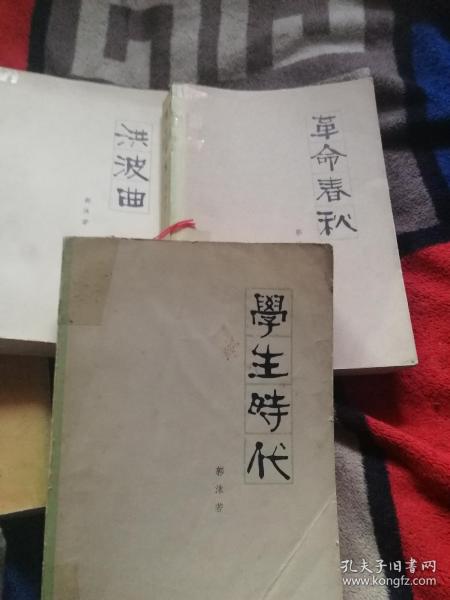 洪波曲
郭沫若
革命春秋
郭
學生時代
郭沫若
孔夫子旧书网
www.kongfz.com